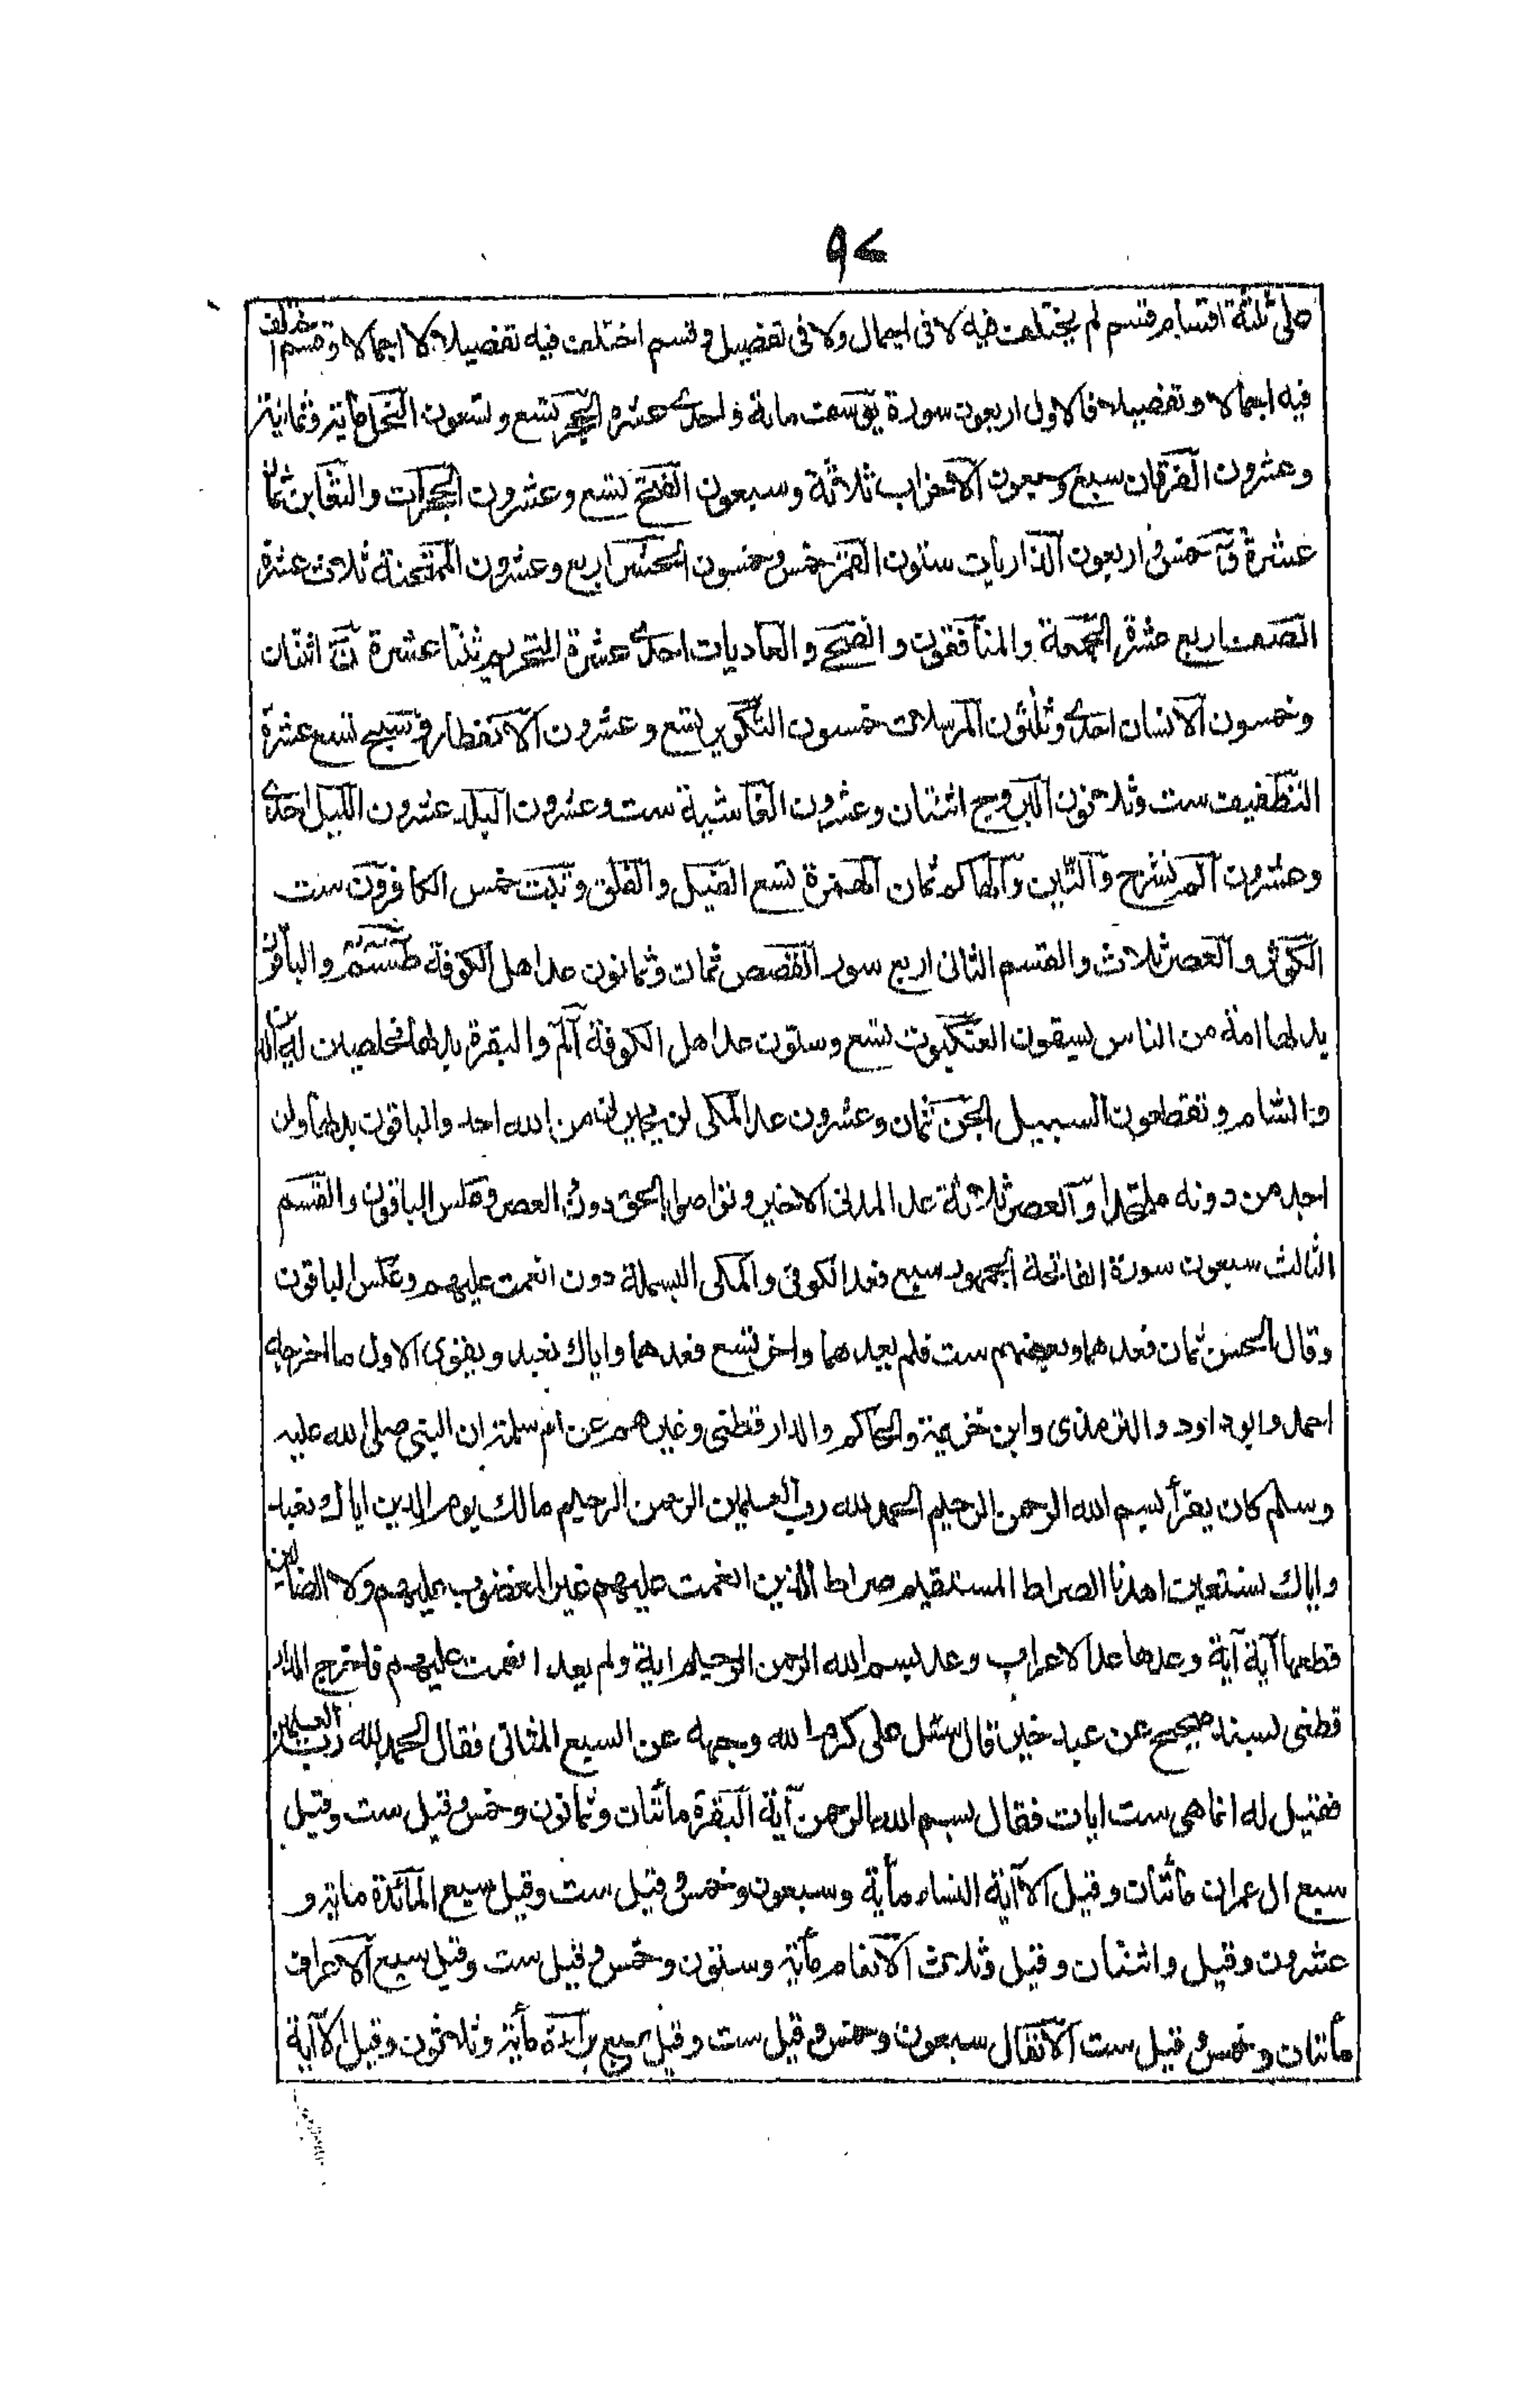 ٩٧
على ثلثة اقسام قسم لم يختلف فيه لا فى اجمال ولا فى تفصيل وقسم اختلف فيه تفصيلا لا اجمالا وقسم اختلف
فيه اجمالا وتفصيلا فالاول اربعون سورة يوسف مائة واحدى عشرة الحجر تسع وتسعون النحل مأية وثمانية
وعشرون الفرقان سبع وسبعون الاحزاب ثلاثة وسبعون الفتح تسع وعشرون الحجرات والتغابن ثمان
عشرة ق خمس واربعون الذاريات ستون القمر خمس وخمسون الحشر اربع وعشرون الممتحنة ثلاث عشرة
الصف اربع عشرة الجمعة والمنافقون والضحى والعاديات احدى عشرة التحريم ثنتا عشرة ن اثنتان
وخمسون الانسان احدى وثلثون المرسلات خمسون التكوير تسع وعشرون الانفطار وسبح تسع عشرة
التطفيف ست وثلاثون البروج اثنتان وعشرون الغاشية ست وعشرون البلد عشرون الليل احدى
وعشرون الم نشرح والتين والهاكم ثمان الهمزة تسع الفيل والفلق وتبت خمس الكافرون ست
الكوثر والعصر ثلاث والقسم الثانى اربع سور القصص ثمان وثمانون عد اهل الكوفة طسم والباقون
بدلها امة من الناس يسقون العنكبوت تسع وستون عد اهل الكوفة الم والبقرة بدلها مخلصين له الدين
والشام وتقطعون السبيل الجن ثمان وعشرون عد المكى لن يجيرنى من الله احد والباقون بدلها ولن
اجد من دونه ملتحدا والعصر ثلاثة عد المدنى الاخير وتواصوا بالحق دون العصر وعكس الباقون والقسم
الثالث سبعون سورة الفاتحة الجمهور سبع فعد الكوفى والمكى البسملة دون انعمت عليهم وعكس الباقون
وقال الحسن ثمان فعدهما وبعضهم ست فلم يعدهما واخر تسع فعدهما واياك نعبد ويقوى الاول ما اخرجه
احمد وابوداود والترمذى وابن خزيمة والحاكم والدارقطنى وغيرهم عن ام سلمة ان النبى صلى الله عليه
وسلم كان يقرأ بسم الله الرحمن الرحيم الحمد لله رب العلمين الرحمن الرحيم مالك يوم الدين اياك نعبد
واياك نستعين اهدنا الصراط المستقيم صراط الذين انعمت عليهم غير المغضوب عليهم ولا الضالين
قطعها آية آية وعدها عد الاعراب وعد بسم الله الرحمن الرحيم اية ولم يعد انعمت عليهم فاخرج الدار
قطنى بسند صحيح عن عبد خير قال سئل على كرم الله وجهه عن السبع المثانى فقال الحمد لله رب العلمين
فقيل له انما هى ست ايات فقال بسم الله الرحمن آية البقرة مأتان وثمانون وخمس وقيل ست وقيل
سبع ال عمران مأتان وقيل الا آية النساء مأية وسبعون وخمس وقيل ست وقيل سبع المآئدة مأية و
عشرون وقيل واثنتان وقيل وثلاث الانعام مأية وستون وخمس وقيل ست وقيل سبع الاعراف
مأتان وخمس وقيل ست الانفال سبعون وخمس وقيل ست وقيل سبع براءة مأية وثلاثون وقيل الا آية